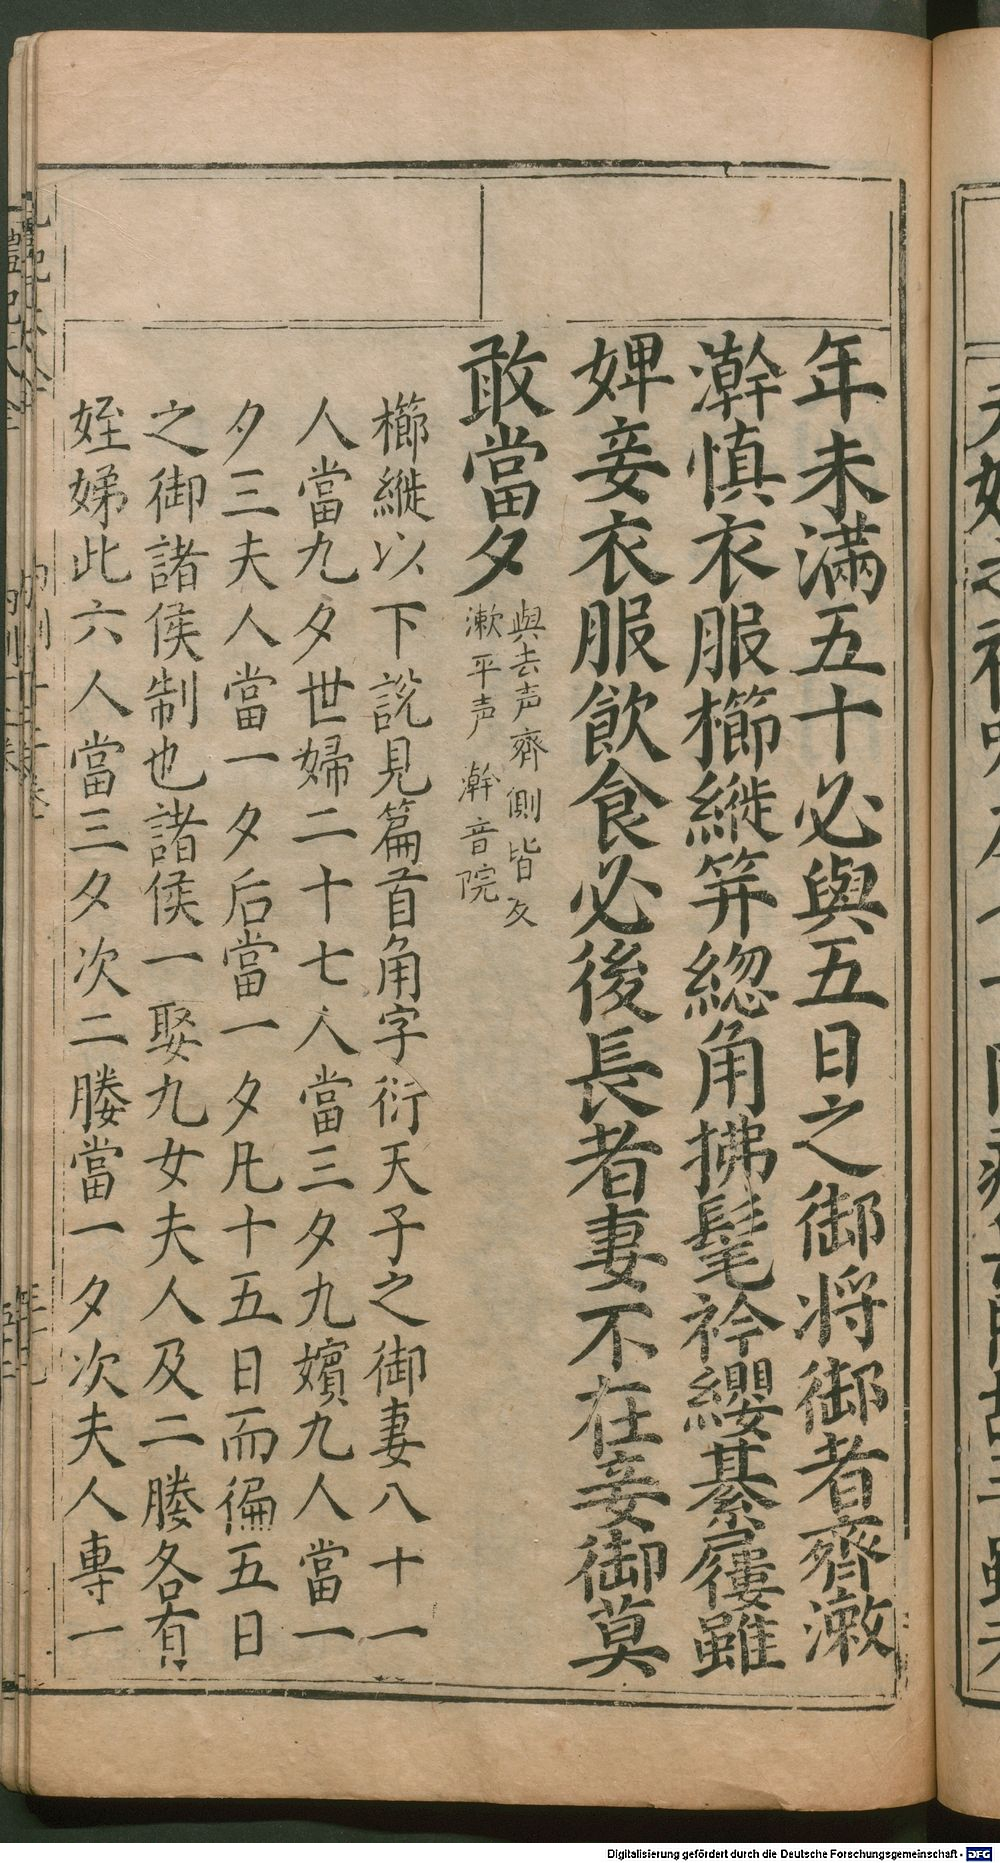 年未滿五十必與五日之御将御者齊漱
澣慎衣服櫛縰笄緫角拂髦衿纓綦屨雖
婢妾衣服飲食必後長者妻不在妾御莫
敢當夕
與去声齊側皆反
漱平声 澣音院
櫛縰以下說見篇首角字衍天子之御妻八十一
人當九夕世婦二十七人當三夕九嬪九人當一
夕三夫人當一夕后當一夕凡十五日而徧五日
之御諸侯制也諸侯一娶九女夫人及二媵各有
姪娣此六人當三夕次二媵當一夕次夫人專一
Digitalisierung gefördert durch die Deutsche Forschungsgemeinschaft - DFG